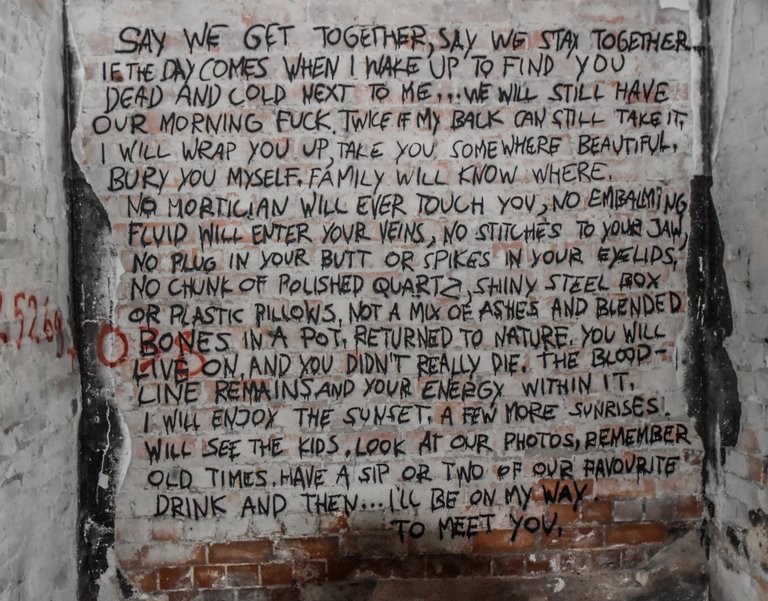 SAY WE GET TOGETHER, SAY WE STAY TOGETHER.
IF THE DAY COMES WHEN I WAKE UP TO FIND YOU
DEAD AND COLD NEXT TO ME...WE WILL STILL HAVE
OUR MORNING FUCK. TWICE IF MY BACK CAN STILL TAKE IT.
I WILL WRAP YOU UP, TAKE YOU SOMEWHERE BEAUTIFUL.
BURY YOU MYSELF. FAMILY WILL KNOW WHERE.
NO MORTICIAN WILL EVER TOUCH YOU, NO EMBALMING
FLUID WILL ENTER YOUR VEINS, NO STITCHES TO YOUR JAW,
NO PLUG IN YOUR BUTT OR SPIKES IN YOUR EYELIDS,
NO CHUNK OF POLISHED QUARTZ, SHINY STEEL BOX
OR PLASTIC PILLOWS, NOT A MIX OF ASHES AND BLENDED
BONES IN A POT. RETURNED TO NATURE. YOU WILL
LIVE ON. AND YOU DIDN'T REALLY DIE. THE BLOOD-
LINE REMAINS AND YOUR ENERGY WITHIN IT.
I WILL ENJOY THE SUNSET. A FEW MORE SUNRISES.
WILL SEE THE KIDS. LOOK AT OUR PHOTOS, REMEMBER
OLD TIMES. HAVE A SIP OR TWO OF OUR FAVOURITE
DRINK AND THEN...I'LL BE ON MY WAY.
TO MEET YOU.